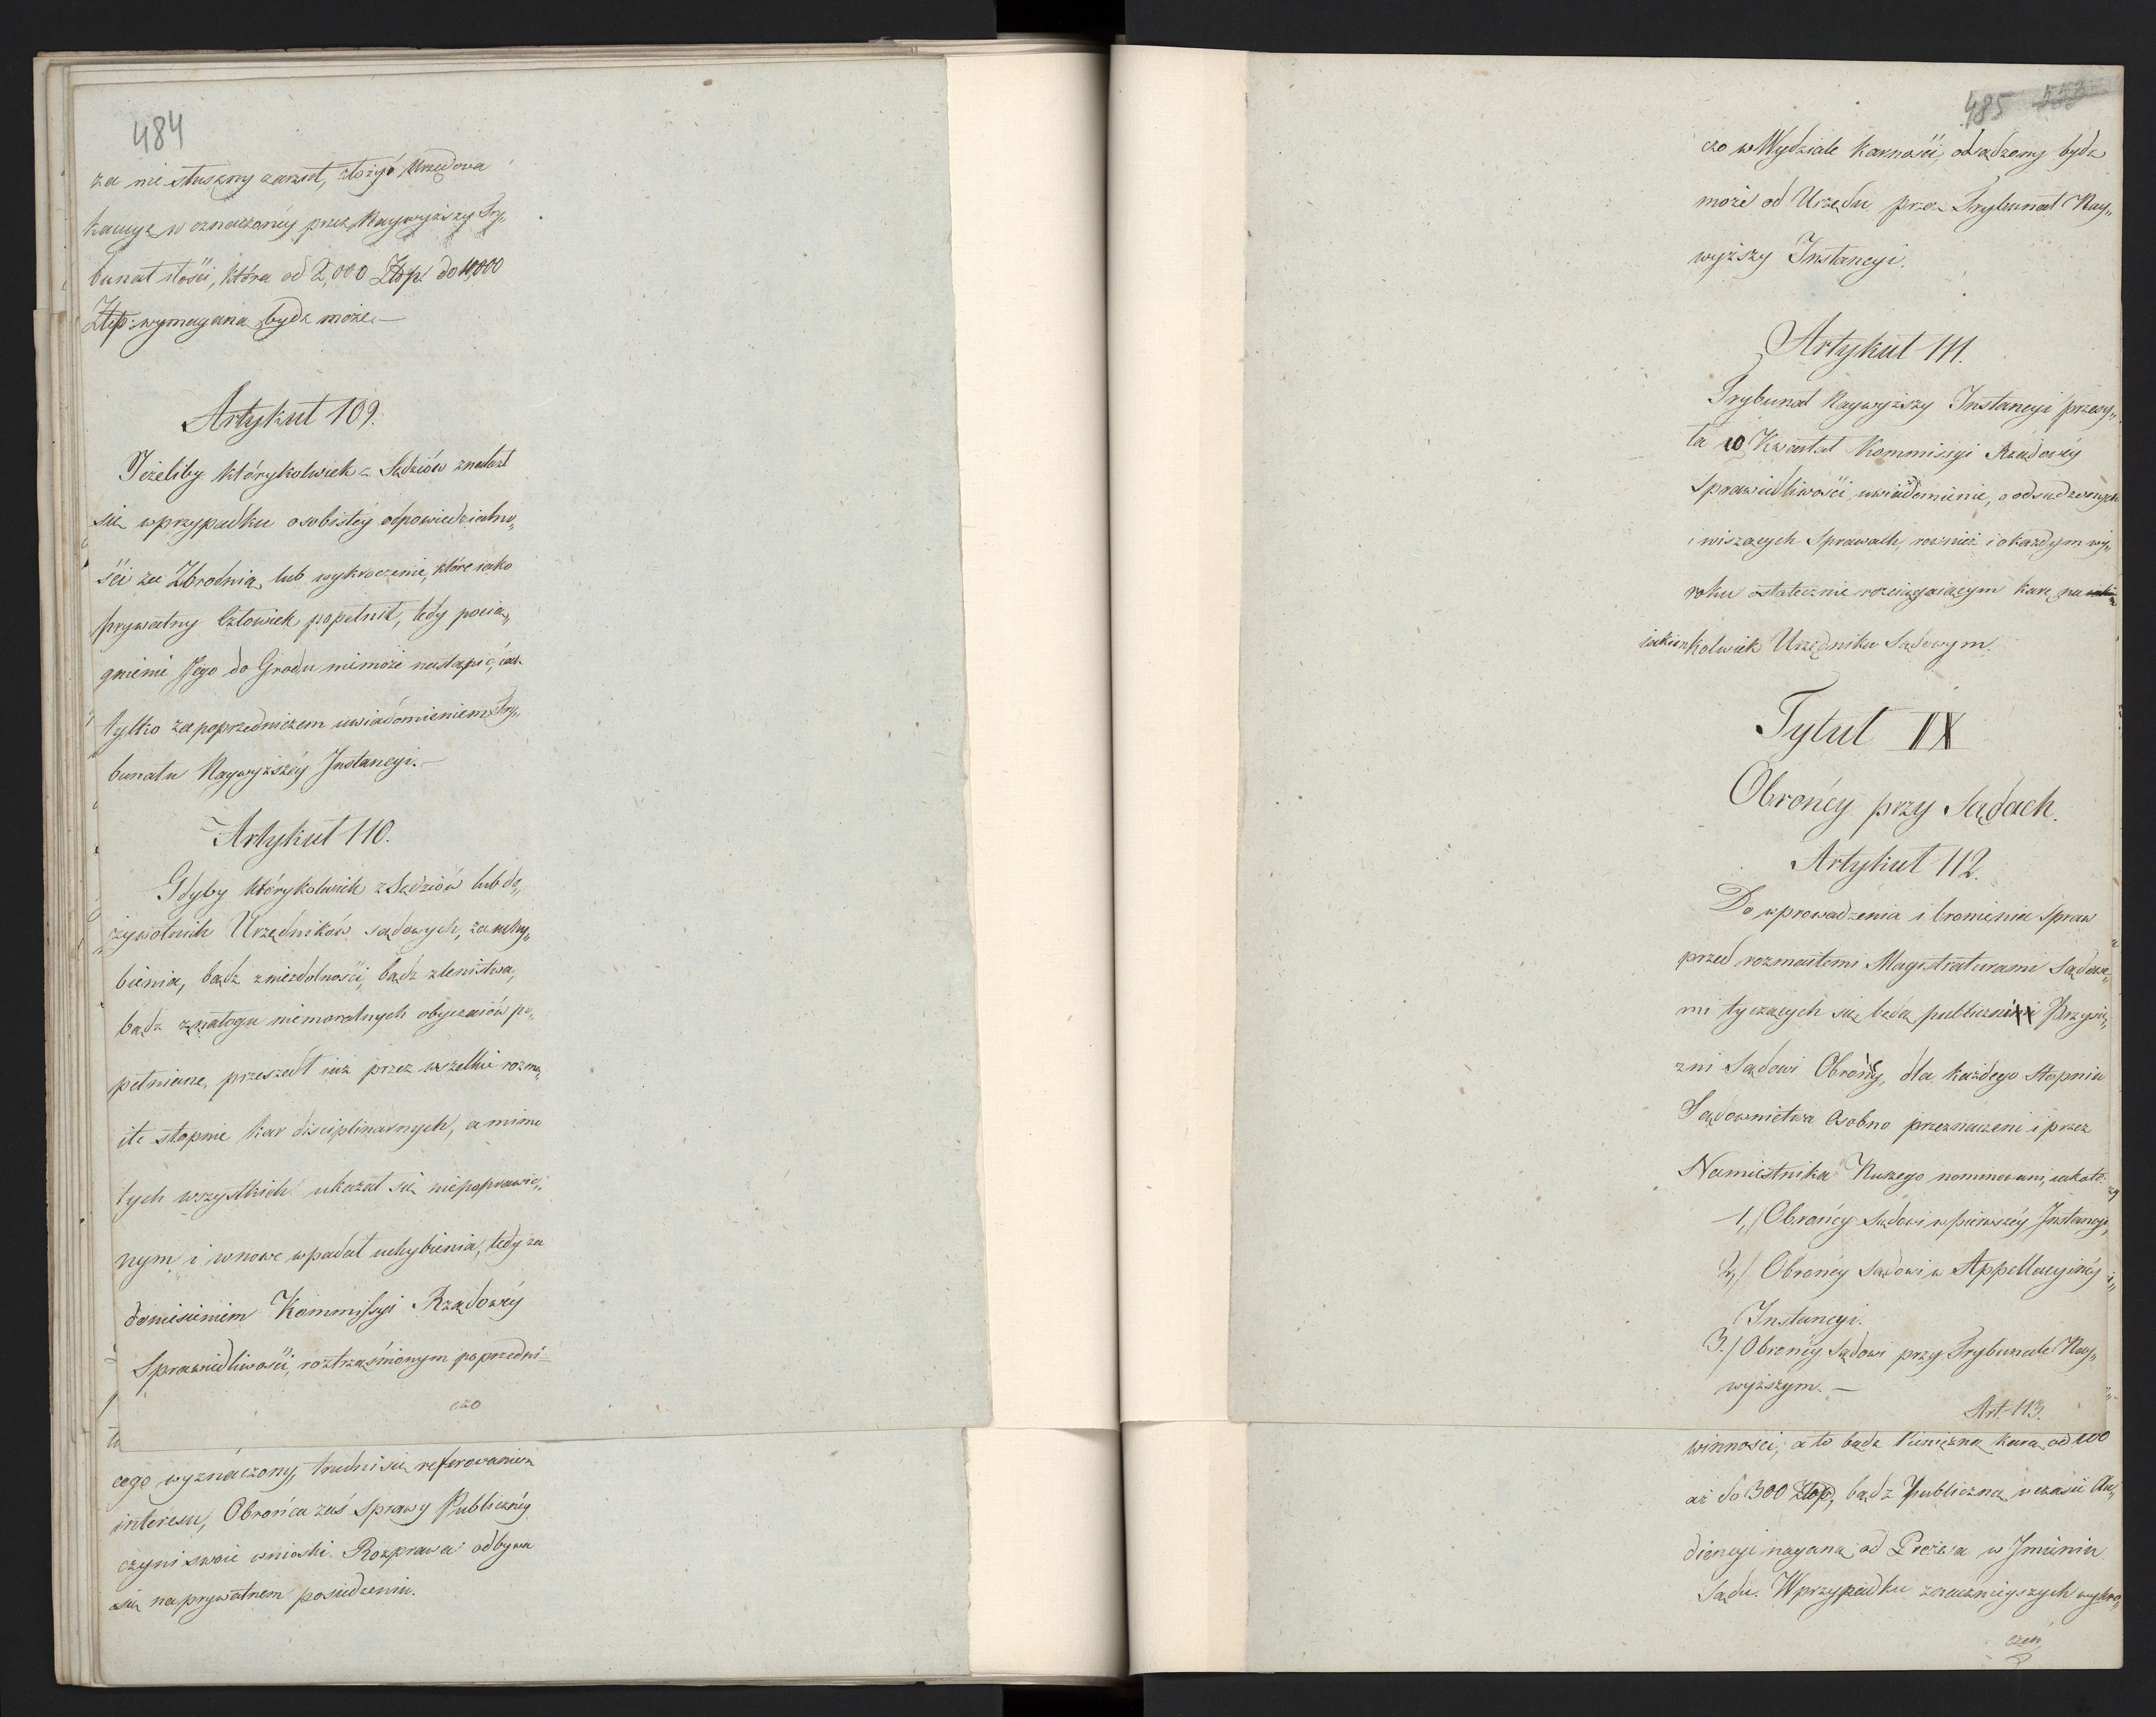 484
za niesłuszny zarzut, złożyć Urzędową
kaucyą w oznaczonéy przez Naywyższy Try„
bunał ilości, która od 2,000 Złtp. do 10,000
Złtp: wymagana bydz może.—
Artykuł 109.
Jeżeliby którykolwiek z Sędziów znalazł
się w przypadku osobistéy odpowiedzialno„
ści za Zbrodnią lub wykroczenie, które iako
prywatny Człowiek popełnił, tedy pocią„
gnienie Jego do Grodu niemoże nastąpić, iak
tylko za poprzedniczem uwiadomieniem Try„
bunału Naywyższéy Instancyi.—
Artykuł 110.
Gdyby którykolwiek z Sędziów lub do„
żywotnich Urzędników sądowych, za uchy„
bienia, bądź z niezdolności, bądź z lenistwa,
bądź z nałogu niemoralnych obyczaiów po„
pełniane, przeszedł iuż przez wszelkie rozma„
ite stopnie kar disciplinarnych, a mimo
tych wszystkich ukazał się niepoprawio„
nym i w nowe wpadał uchybienia, tedy za
doniesieniem Kommissyi Rządowéy
Sprawiedliwości, roztrząśnionym poprzedni„
czo
cego wyznaczony, trudni się referowaniem
interesu, Obrońca zaś Sprawy Publicznéy
czyni swoie wnioski. Rozprawa odbywa
się na prywatnem posiedzeniu.
485 553
czo w Wydziale karności, odsądzony bydź
może od Urzędu przez Trybunał Nay„
wyższy Instancyi.
Artykuł 111.
Trybunał Naywyższy Instancyi przesy„
ła co Kwartał Kommissyi Rządowéy
Sprawiedliwości uwiadomienie, o odsądzonych
i wiszących Sprawach, rownież i o każdym wy„
roku ostatecznie rozciągaiącym karę na
iakimkolwiek Urzędniku Sądowym.
Tytuł IX
Obrońcy przy Sądach.
Artykuł 112.
Do wprowadzenia i bronienia Spraw
przed rozmaitemi Magistraturami Sądowe„
mi tyczących się, będą publiczni Przysię„
żni Sądowi Obrońcy, dla każdego Stopnia
Sądownictwa osobno przeznaczeni i przez
Namiestnika Naszego nominowani, iakoto:
1,/ Obrońcy Sądowi w pierwszéy Instancyi,
2,/ Obrońcy Sądowi w Appellacyinéy
Instancyi.
3./ Obrońcy Sądowi przy Trybunale Nay„
wyższym.—
Art. 113.
winności, a to bądź Pieniężna kara od 100
aż do 300 Złtp, bądź Publiczna w czasie Au„
diencyi nagana od Prezesa w Imieniu
Sądu. W przypadku znacznieyszych wykro„
czeń